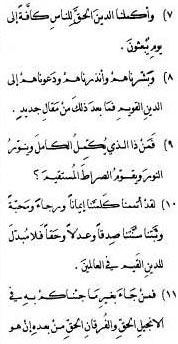 ٧) وأكملنا الدين الحق للناس كافة إلى
يوم يبعثون .
٨) وبشرناهم وأنذرناهم ودعوناهم إلى
الدين القويم فما بعد ذلك من مقال جديد .
٩) فمن ذا الذي يكمل الكامل وينور
النور ويقوم الصراط المستقيم ؟
١٠) لقد أتممنا كلمتنا إيمانا ورجاء ومحبة
وثبتنا سنتنا صدقا وعدلا وحقا فلا مبدل
للدين القيم في العالمين .
١١) فمن جاء بغير ما جئناكم به في
الانجيل الحق والفرقان الحق من بعده إن هو